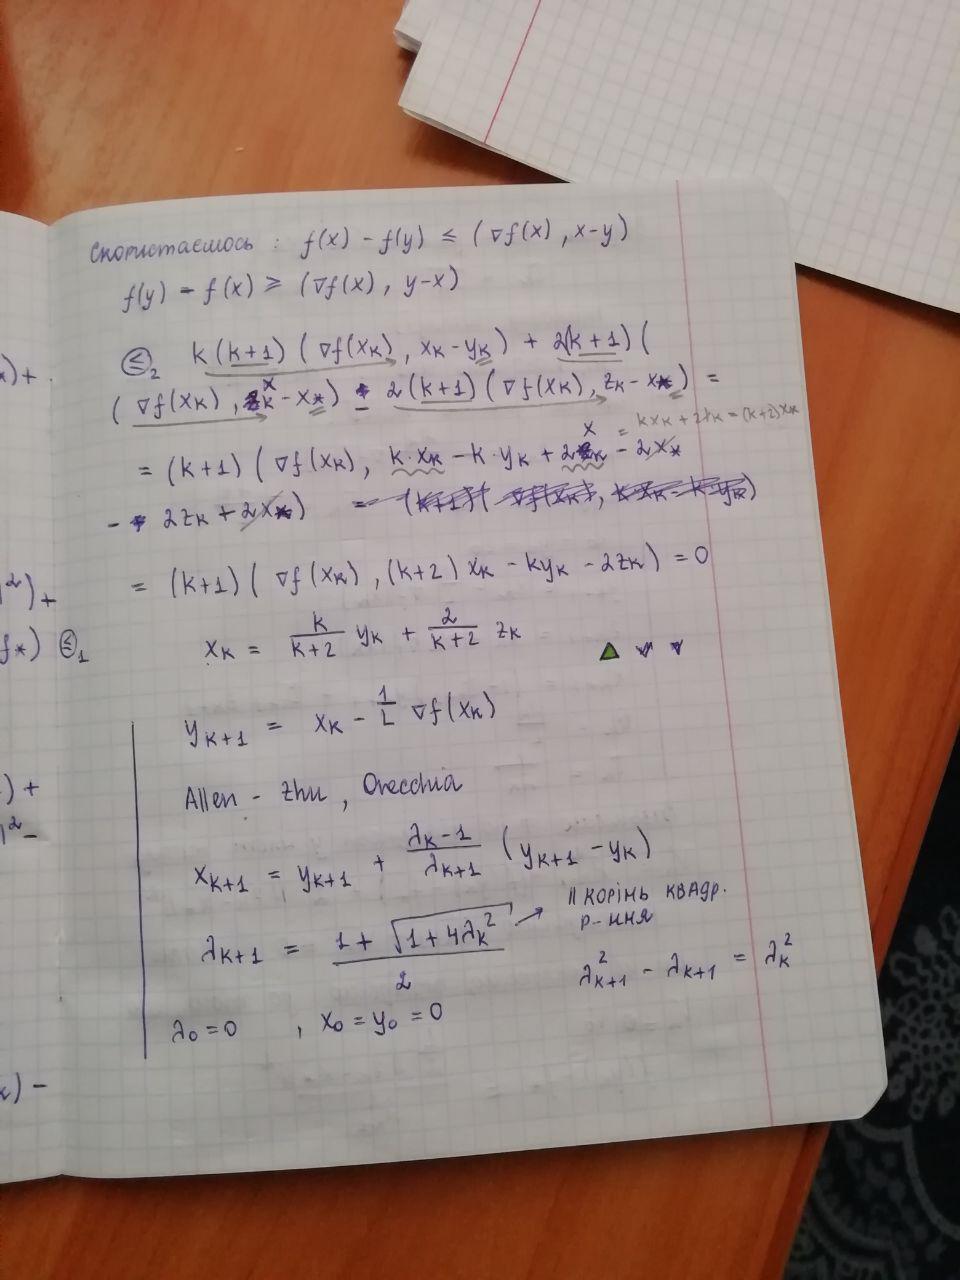 Скористаємось : f(x) - f(y) ≤ (∇f(x), x-y)
f(y) - f(x) ≥ (∇f(x), y-x)
*)+
≤₂ k(k+1) (∇f(xₖ), xₖ - yₖ) + 2(k+1) (
(∇f(xₖ), x - x*) - 2(k+1) (∇f(xₖ), zₖ - x*) =
= kxₖ + 2xₖ = (k+2)xₖ
= (k+1) (∇f(xₖ), k·xₖ - k·yₖ + 2x - 2x*
- 2zₖ + 2x*) = (k+1)(∇f(xₖ), k·xₖ - k·yₖ)
|²)+
= (k+1) (∇f(xₖ), (k+2)xₖ - kyₖ - 2zₖ) = 0
f*) ≤₁
xₖ = k/(k+2) yₖ + 2/(k+2) zₖ
yₖ₊₁ = xₖ - 1/L ∇f(xₖ)
)+
Allen - Zhu, Orecchia
|² -
xₖ₊₁ = yₖ₊₁ + (λₖ-1)/λₖ₊₁ (yₖ₊₁ - yₖ)
λₖ₊₁ = (1 + √(1+4λₖ²))/2 → || корінь квадр.
р-ння
λ²ₖ₊₁ - λₖ₊₁ = λₖ²
λ₀ = 0 , x₀ = y₀ = 0
) -